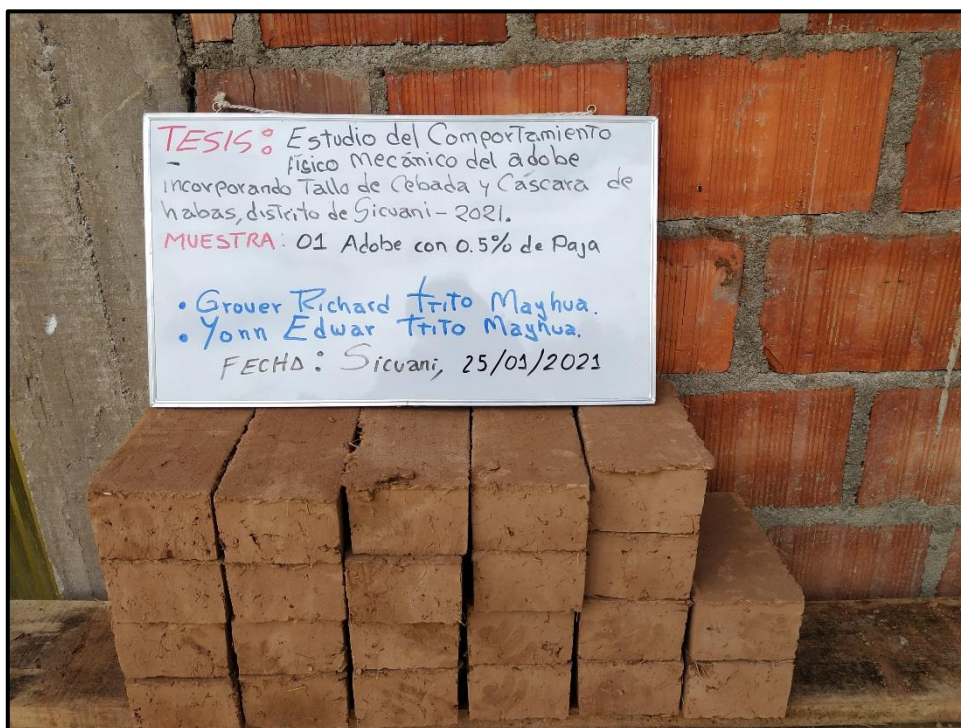 TESIS: Estudio del Comportamiento
físico Mecánico del adobe
incorporando Tallo de Cebada y Cáscara de
habas, distrito de Sicuani - 2021.
MUESTRA: 01 Adobe con 0.5% de Paja
• Grover Richard Ttito Mayhua.
• Yonn Edwar Ttito Mayhua.
FECHA: Sicuani, 25/01/2021